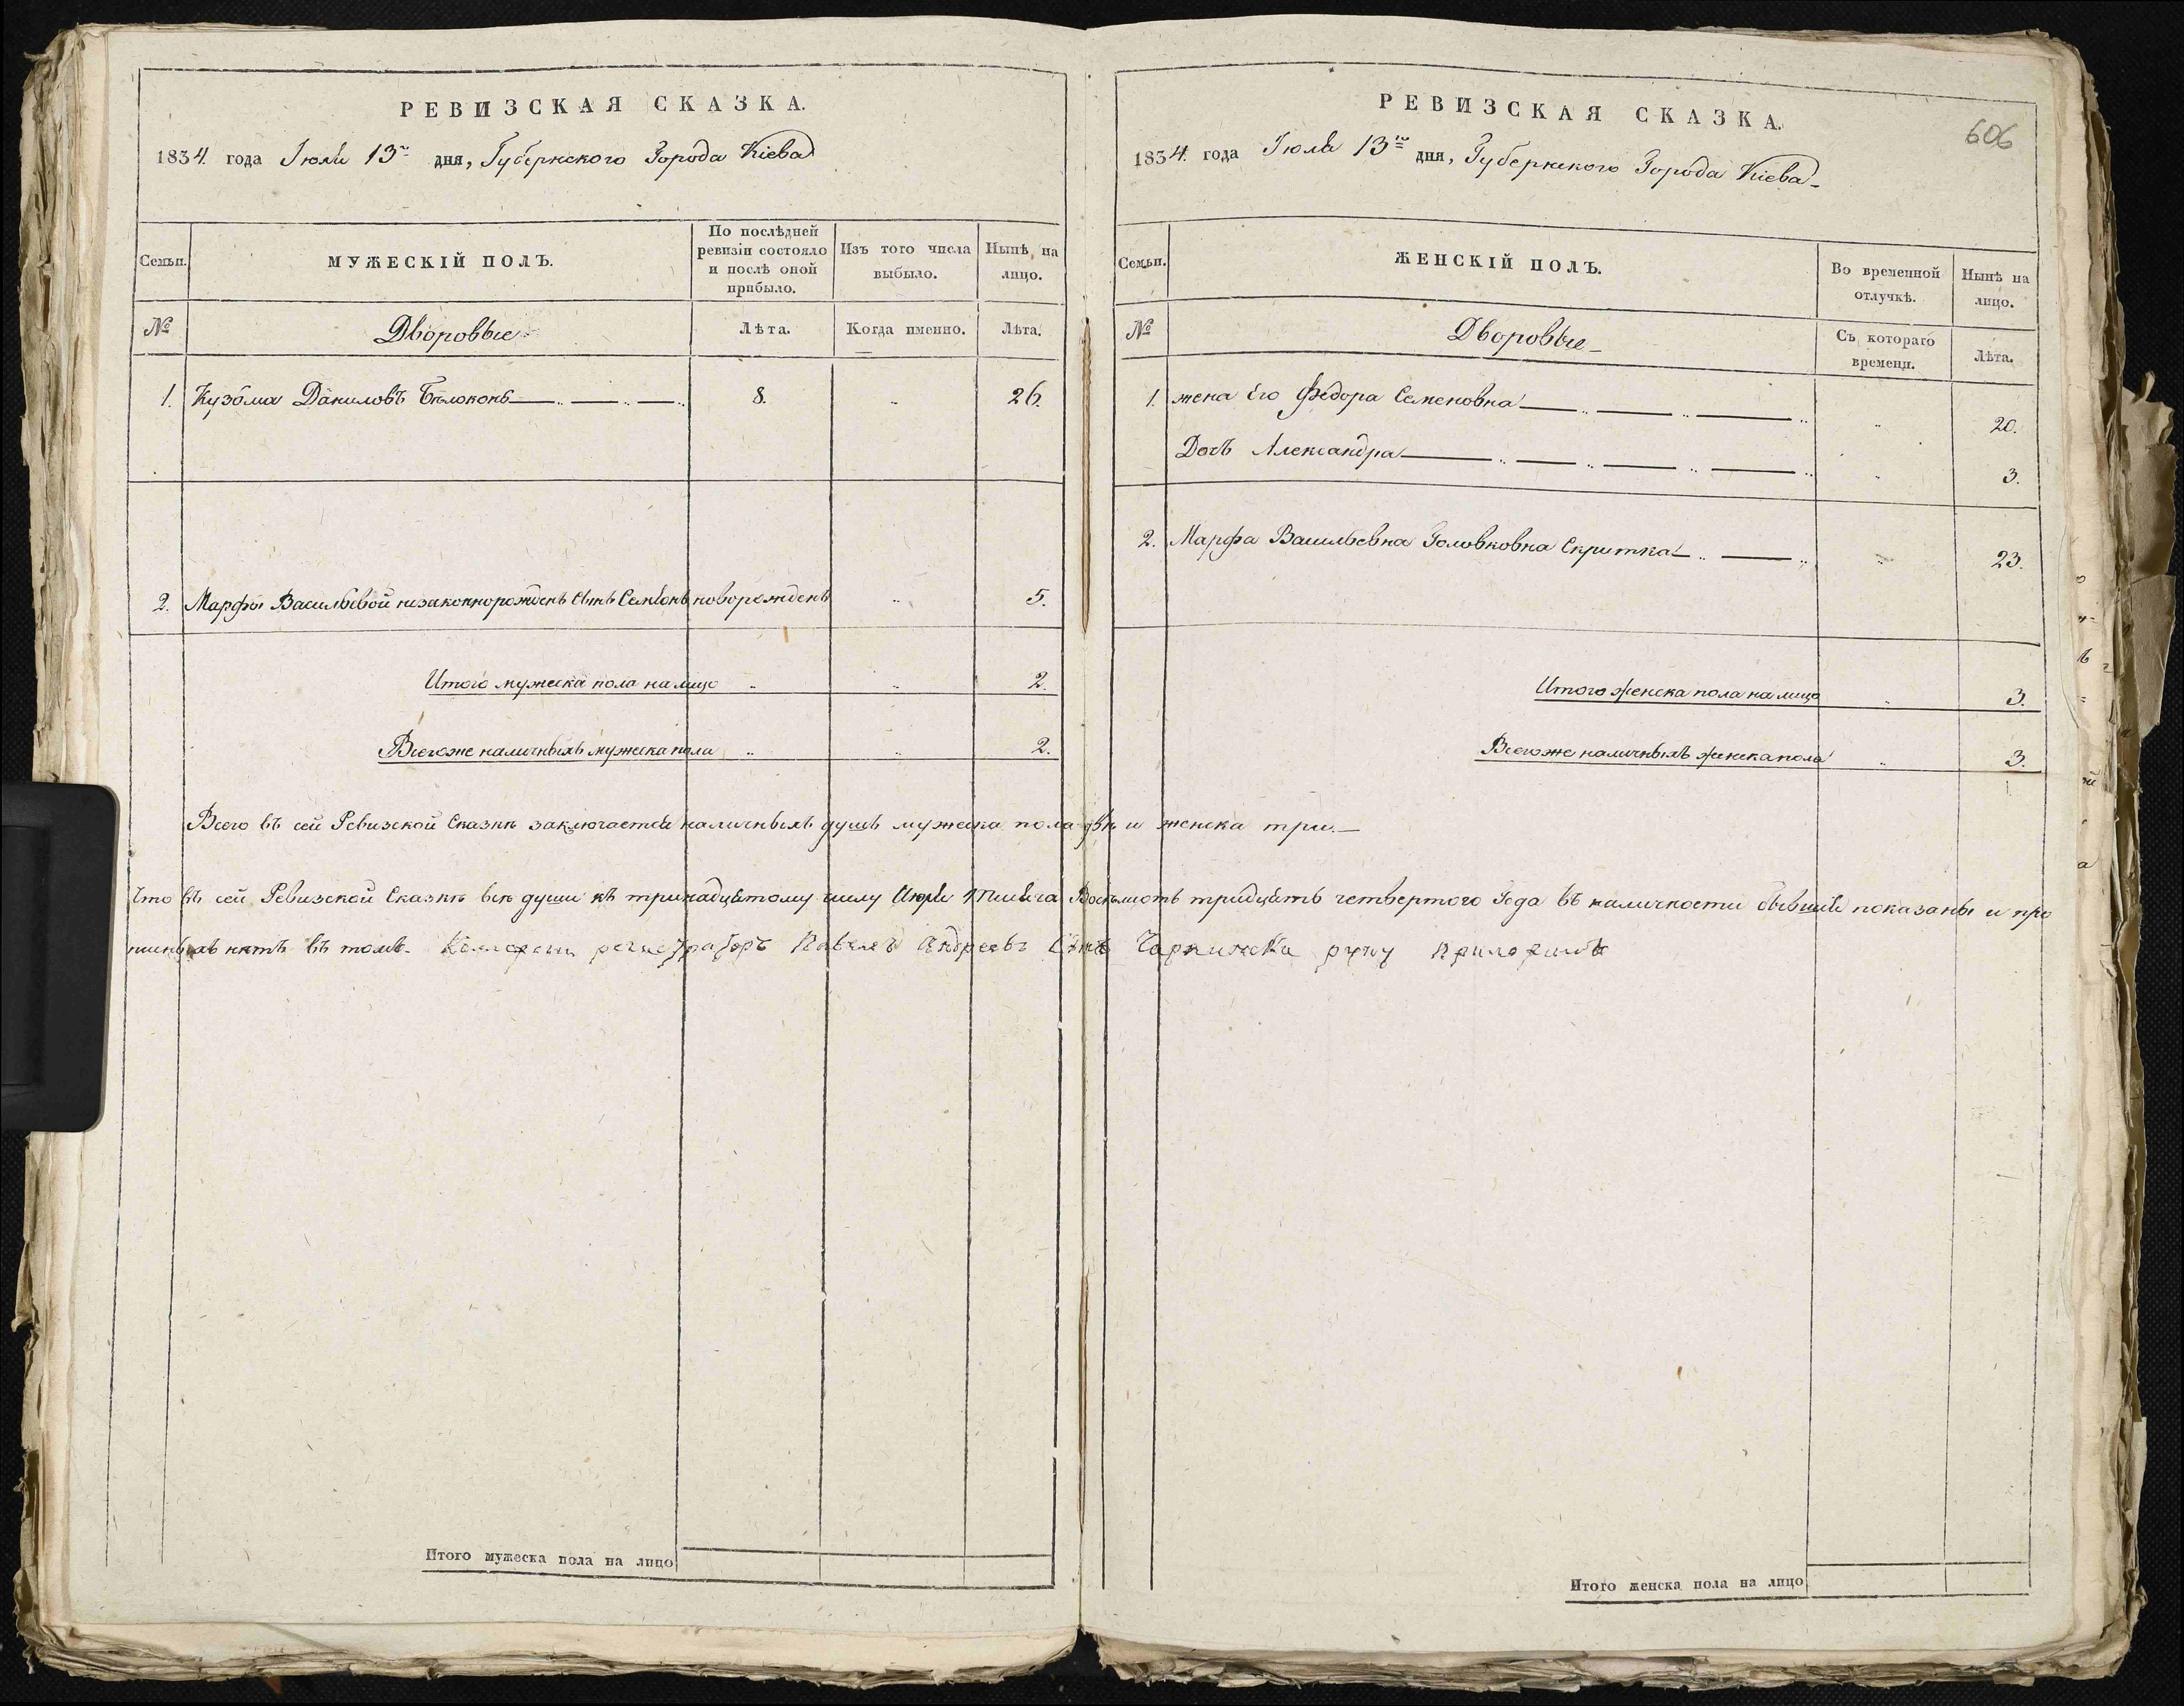 РЕВИЗСКАЯ СКАЗКА.
1834. года Іюля 13го дня, Губернского Города Кіева
Семьи.
МУЖЕСКІЙ ПОЛЪ.
По послѣдней
ревизіи состояло
и послѣ оной
прибыло.
Изъ того числа
выбыло.
Нынѣ на
лицо.
№
Дворовые
Лѣта.
Когда именно.
Лѣта.
1. Кузьма Даниловъ Бѣлоконь 8. 26.
2. Марфы Васильевой незаконнорожденъ Сынъ Семіонъ новорожденъ 5.
Итого мужеска пола на лицо 2.
Всего же наличныхъ мужеска пола 2.
РЕВИЗСКАЯ СКАЗКА.
606
1834. года Іюля 13го дня, Губернского Города Кіева
Семьи.
ЖЕНСКІЙ ПОЛЪ.
Во временной
отлучкѣ.
Нынѣ на
лицо.
№
Дворовые
Съ котораго
времени.
Лѣта.
1. жена Его Федора Семеновна 20.
Дочь Александра 3.
2. Марфа Васильевна Головковна Скритка 23.
Итого женска пола на лицо 3.
Всего же наличныхъ женска пола 3.
Всего въ сей Ревизской Сказкѣ заключается наличныхъ душъ мужеска пола двѣ и женска три.
Что въ сей Ревизской Сказкѣ всѣ души къ тринадцятому числу Июля 1 Тысяча Восьмсотъ тридцять четвертого Года въ наличности бывшія показаны и про
писныхъ нѣтъ въ томъ. регистраторъ Павелъ Андреевъ Сынъ руку приложилъ
Итого мужеска пола на лицо
Итого женска пола на лицо